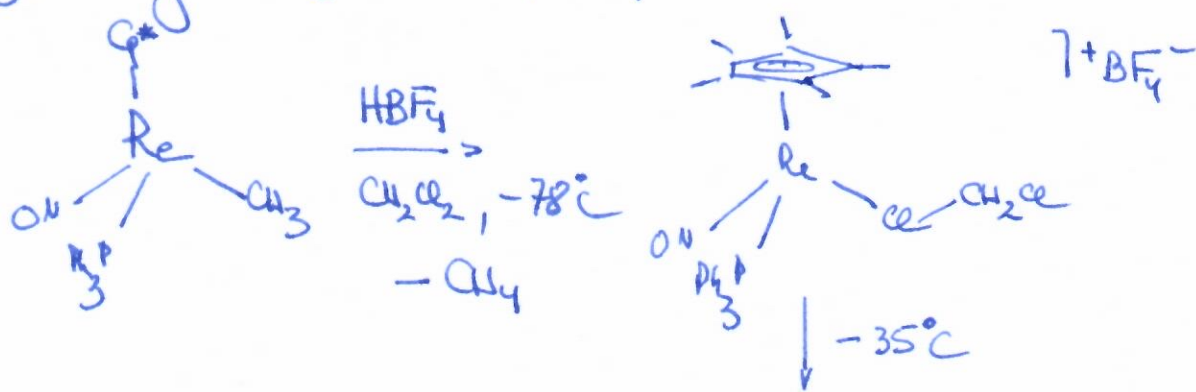 C*
Re
ON
Ph3P
CH3
HBF4
CH2Cl2, -78°C
- CH4
Re
ON
Ph3P
Cl
CH2Cl
]+ BF4-
-35°C